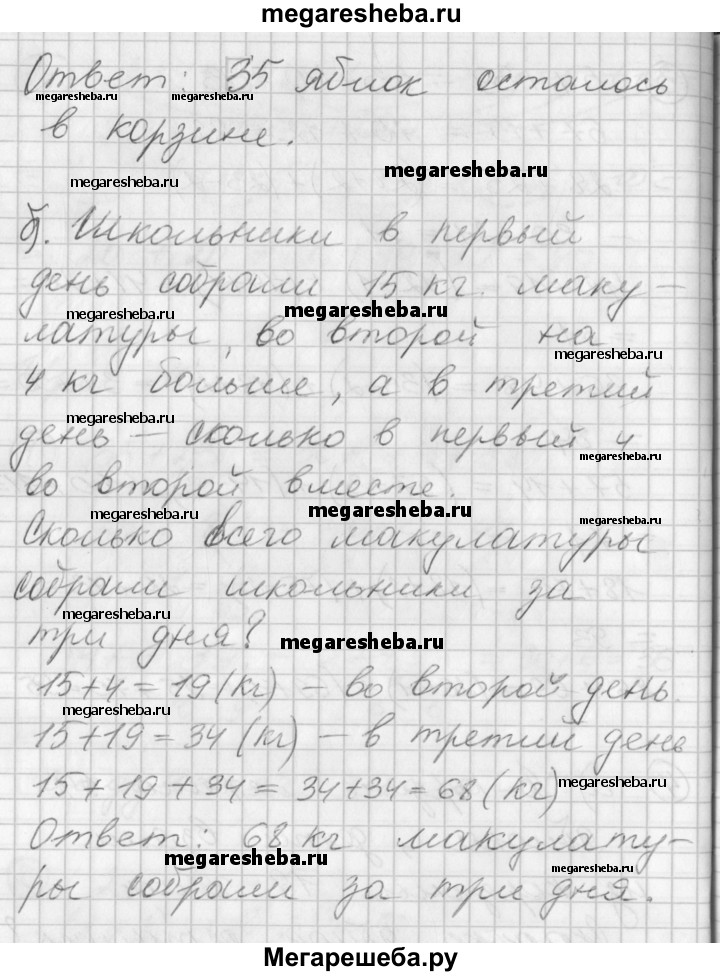 megaresheba.ru
Ответ: 35 яблок осталось
megaresheba.ru megaresheba.ru megaresheba.ru
в корзине.
megaresheba.ru
megaresheba.ru
б). Школьники в первый
день собрали 15 кг. маку-
megaresheba.ru
латуры, во второй на
megaresheba.ru
4 кг больше, а в третий
megaresheba.ru
день – сколько в первый и
megaresheba.ru
во второй вместе.
megaresheba.ru megaresheba.ru megaresheba.ru
Сколько всего макулатуры
собрали школьники за
megaresheba.ru
три дня?
megaresheba.ru
15+4=19(кг) – во второй день.
megaresheba.ru
15+19=34(кг) – в третий день
15+19+34=34+34=68(кг)
megaresheba.ru
Ответ: 68 кг макулату-
megaresheba.ru
ры собрали за три дня.
Мегарешеба.ру